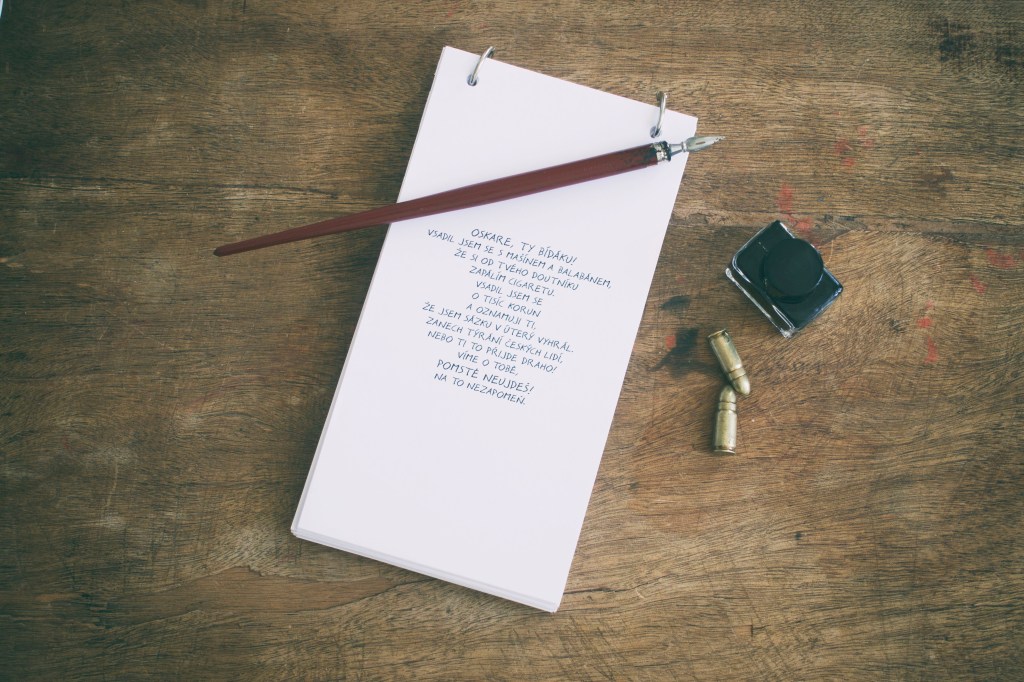 OSKARE, TY BÍDÁKU!
VSADIL JSEM SE S MAŠÍNEM A BALABÁNEM,
ŽE SI OD TVÉHO DOUTNÍKU
ZAPÁLÍM CIGARETU.
VSADIL JSEM SE
O TISÍC KORUN
A OZNAMUJI TI,
ŽE JSEM SÁZKU V ÚTERÝ VYHRÁL.
ZANECH TÝRÁNÍ ČESKÝCH LIDÍ,
NEBO TI TO PŘIJDE DRAHO!
VÍME O TOBĚ,
POMSTĚ NEUJDEŠ!
NA TO NEZAPOMEŇ.